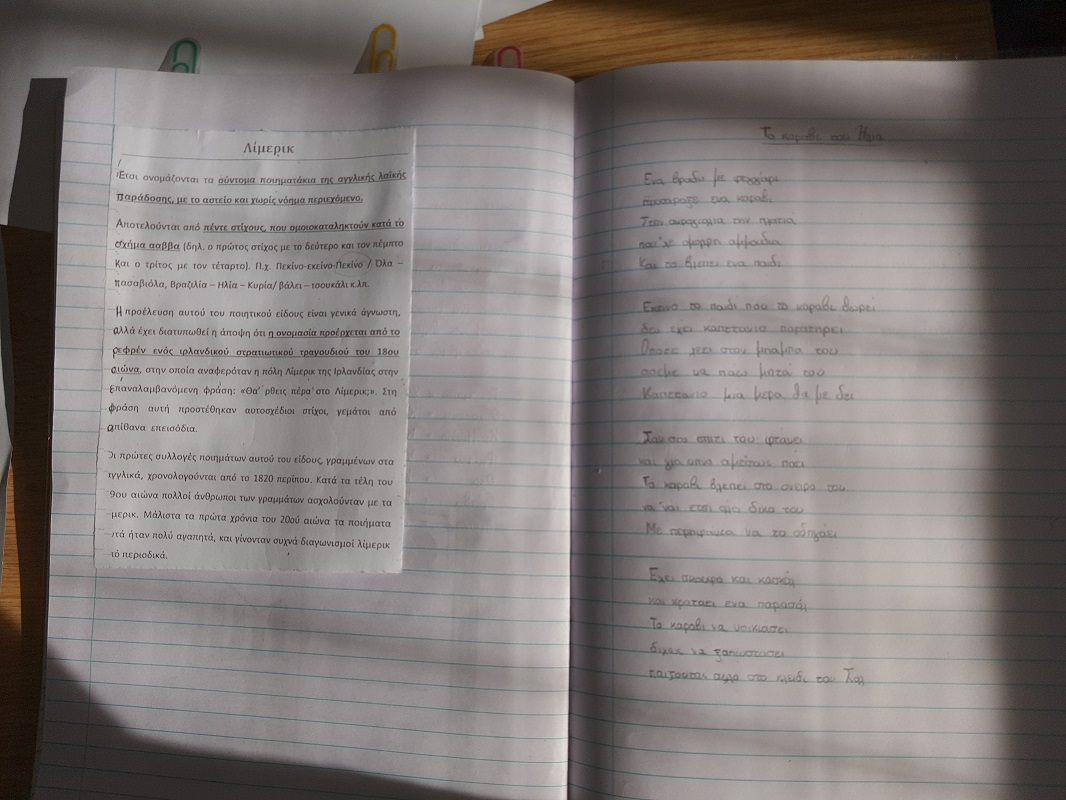 Λίμερικ
Έτσι ονομάζονται τα σύντομα ποιηματάκια της αγγλικής λαϊκής
παράδοσης, με το αστείο και χωρίς νόημα περιεχόμενο.
Αποτελούνται από πέντε στίχους, που ομοιοκαταληκτούν κατά το
σχήμα ααββα (δηλ. ο πρώτος στίχος με το δεύτερο και τον πέμπτο
και ο τρίτος με τον τέταρτο). Π.χ. Πεκίνο-εκείνο-Πεκίνο / Όλα –
πασαβιόλα, Βραζιλία – Ηλία – Κυρία/ βάλει – τσουκάλι κ.λπ.
Η προέλευση αυτού του ποιητικού είδους είναι γενικά άγνωστη,
αλλά έχει διατυπωθεί η άποψη ότι η ονομασία προέρχεται από το
ρεφρέν ενός ιρλανδικού στρατιωτικού τραγουδιού του 18ου
αιώνα, στην οποία αναφερόταν η πόλη Λίμερικ της Ιρλανδίας στην
επαναλαμβανόμενη φράση: «Θα' ρθεις πέρα στο Λίμερικ;». Στη
φράση αυτή προστέθηκαν αυτοσχέδιοι στίχοι, γεμάτοι από
απίθανα επεισόδια.
Οι πρώτες συλλογές ποιημάτων αυτού του είδους, γραμμένων στα
γγλικά, χρονολογούνται από το 1820 περίπου. Κατά τα τέλη του
9ου αιώνα πολλοί άνθρωποι των γραμμάτων ασχολούνταν με τα
μερικ. Μάλιστα τα πρώτα χρόνια του 20ού αιώνα τα ποιήματα
υτά ήταν πολύ αγαπητά, και γίνονταν συχνά διαγωνισμοί λίμερικ
ό περιοδικά.
Το καραβι του Ηλια
Ενα βραδυ με φεγγαρι
προσαραξε ενα καραβι
Στην ακρογιαλια την πλατια
που 'χε ομορφη αμμουδια
Και το βλεπει ενα παιδι
Εκεινο το παιδι που το καραβι θωρει
δεν εχει καπετανιο παρατηρει
στον μπαμπα του
να παω
Καπετανιο μια μερα θα με δει
σπιτι του φτανει
και για υπνο αμεσως παει
Το καραβι βλεπει στο ονειρο του
να 'ναι ετσι δικο του
Με να το οδηγαει
Εχει σκουφο και
και κραταει ενα
Το καραβι να
να
στο του